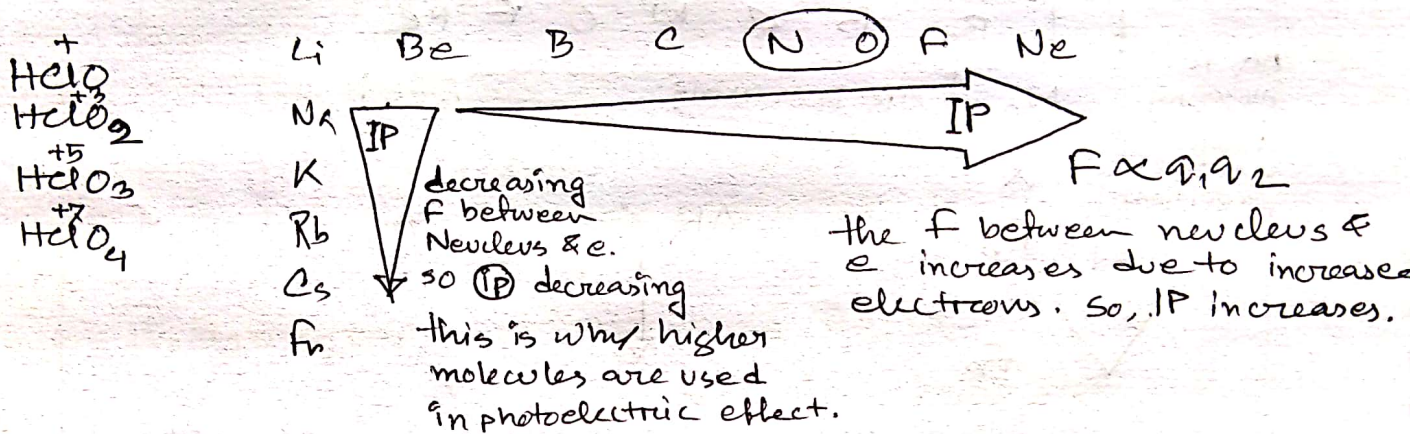 +
HClO
+3
HClO2
+5
HClO3
+7
HClO4
Li Be B C N O F Ne
Na
K
Rb
Cs
Fr
IP
IP
decreasing
F between
Neucleus & e.
so IP decreasing
this is why higher
molecules are used
in photoelectric effect.
F ∝ q1q2
the f between neucleus &
e increases due to increased
electrons. So, IP increases.